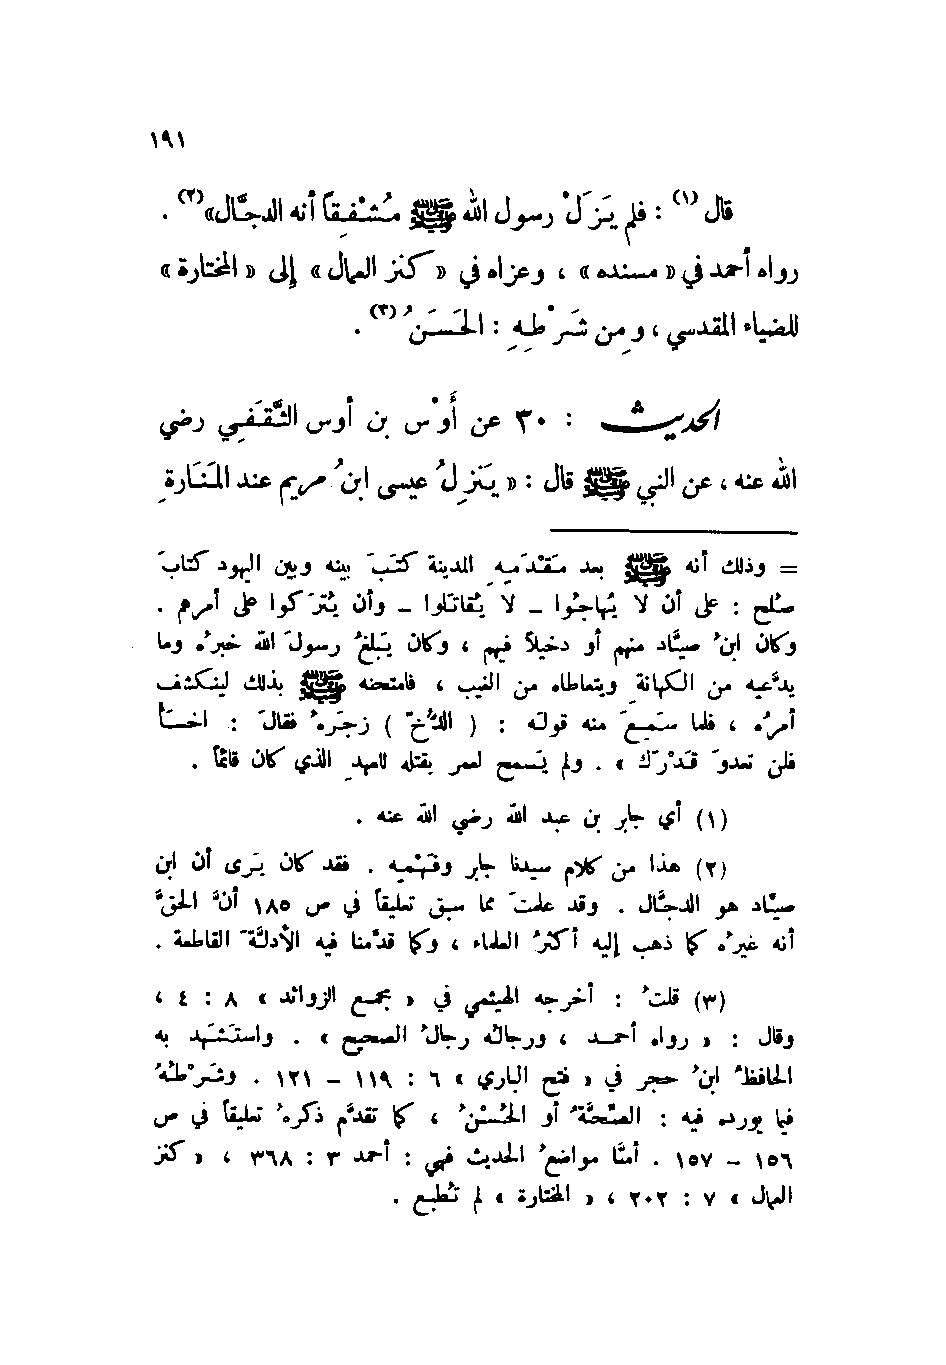 ١٩١
قال (١) : فلم يَزَلْ رسول الله ﷺ مُشْفِقاً أنه الدجّال» (٢) .
رواه أحمد في « مسنده » ، وعزاه في « كنز العمال » إلى « المختارة »
للضياء المقدسي ، ومِن شَرْطِهِ : الحَسَنُ (٣) .
الحديث : ٣٠ عن أَوْس بن أوس الثَّقَفي رضي
الله عنه ، عن النبي ﷺ قال : « يَنزِلُ عيسى ابنُ مريم عند المَنَارة
= وذلك أنه ﷺ بعد مَقْدَمِهِ المدينة كتَبَ بينه وبين اليهود كتابَ
صُلح : على أن لا يُهاجُوا – لا يُقاتَلوا – وأن يُتْرَكوا على أمرهم .
وكان ابنُ صيَّاد منهم أو دخيلاً فيهم ، وكان يَبلغُ رسولَ الله خبرُه وما
يدَّعيه من الكهانةِ ويتعاطاه من الغيب ، فامتحنه ﷺ بذلك لينكشف
أمرُه ، فلما سَمِعَ منه قولَه : ( الدُّخّ ) زجَرَهُ فقالَ : اخسَأ
فلن تعدوَ قَدْرَك » . ولم يَسمح لعمر بقتله للعهدِ الذي كان قائماً .
(١) أي جابر بن عبد الله رضي الله عنه .
(٢) هذا من كلام سيدنا جابر وفَهْمِه . فقد كان يَرى أن ابن
صيّاد هو الدجَّال . وقد علمتَ مما سبق تعليقاً في ص ١٨٥ أنَّ الحقَّ
أنه غيرُه كما ذهب إليه أكثرُ العلماء ، وكما قدَّمنا فيه الأدلَّةَ القاطعة .
(٣) قلتُ : أخرجه الهيثمي في « مجمع الزوائد » ٨ : ٤ ،
وقال : « رواه أحمد ، ورجالُه رجالُ الصحيح » . واستَشهَد به
الحافظُ ابنُ حجر في « فتح الباري » ٦ : ١١٩ – ١٢١ . وشَرْطُهُ
فيما يورده فيه : الصِّحَّةُ أو الحُسْنُ ، كما تقدَّم ذكرُه تعليقاً في ص
١٥٦ – ١٥٧ . أمَّا مواضعُ الحديث فهي : أحمد ٣ : ٣٦٨ ، « كنز
العمال » ٧ : ٢٠٢ ، « المختارة » لم تُطبع .